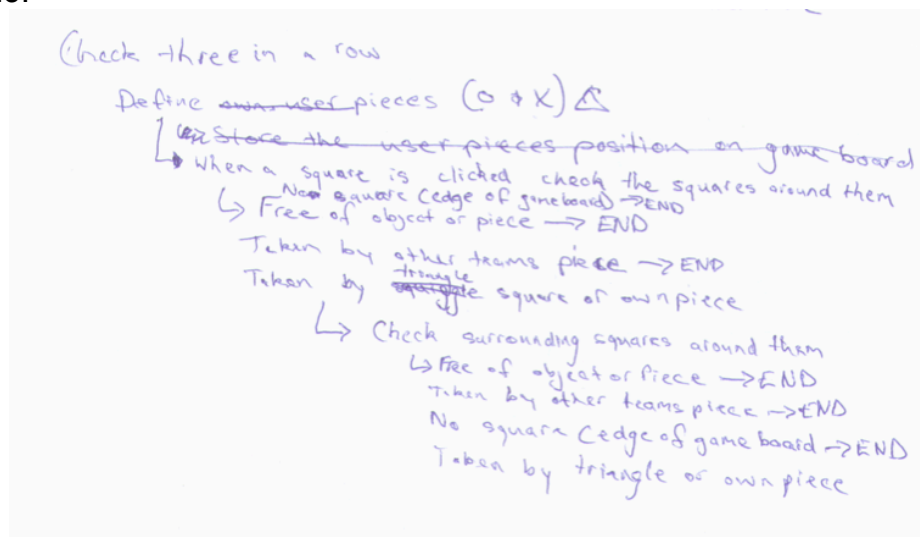 Check three in a row
Define own user pieces (O & X) △
Store the user pieces position on game board
When a square is clicked check the squares around them
No square (edge of gameboard) → END
↳ Free of object or piece → END
Taken by other teams piece → END
triangle
Taken by square or own piece
↳ Check surrounding squares around them
↳ Free of object or Piece → END
Taken by other teams piece → END
No square (edge of game board → END
Taken by triangle or own piece